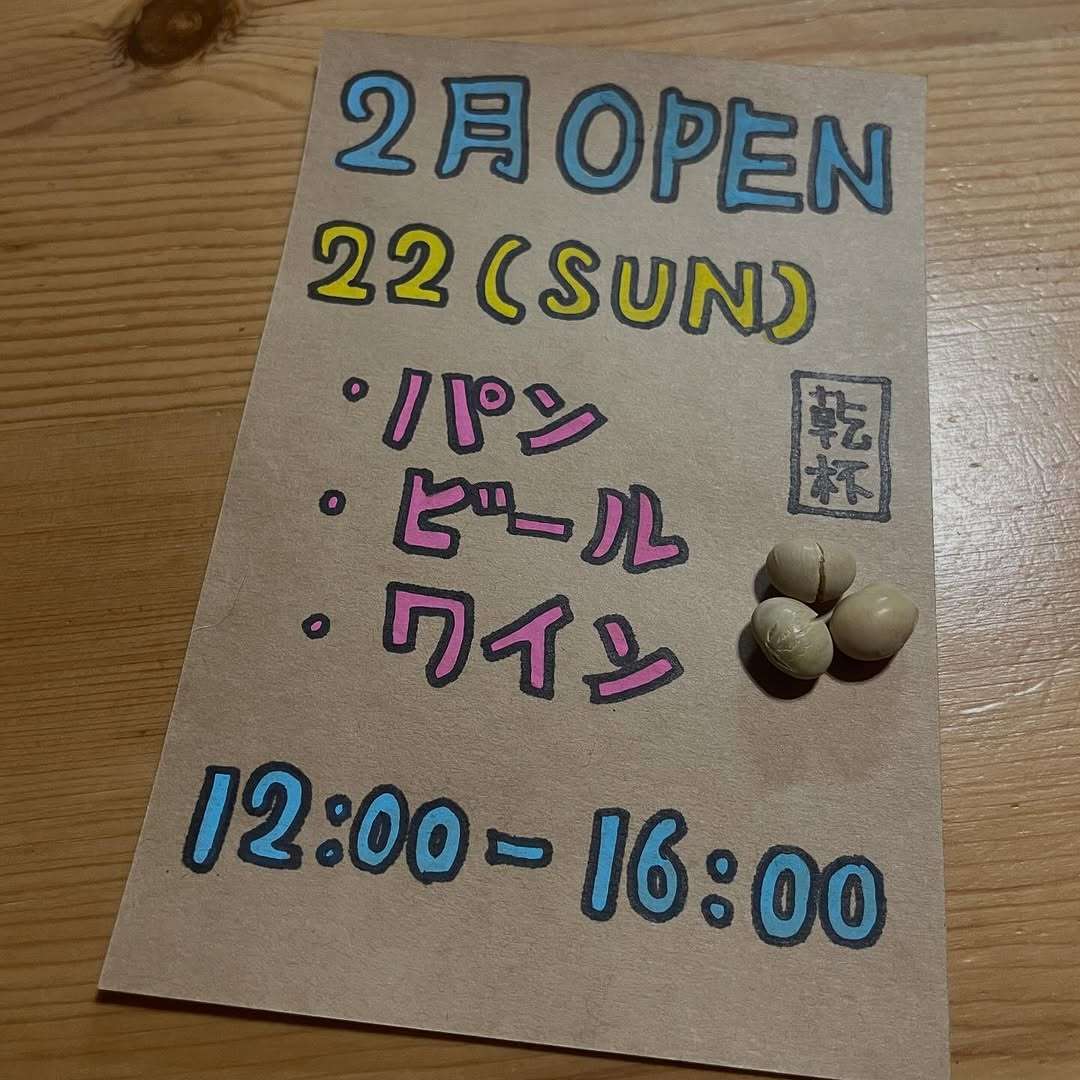 2月OPEN
22(SUN)
・パン
・ビール
・ワイン
乾杯
12:00-16:00